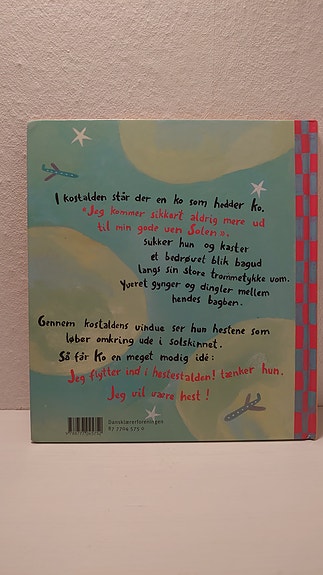 I kostalden står der en ko som hedder Ko.
"Jeg kommer sikkert aldrig mere ud
til min gode ven Solen",
sukker hun og kaster
et bedrøvet blik bagud
langs sin store trommetykke vom.
Yveret gynger og dingler mellem
hendes bagben.
Gennem kostaldens vindue ser hun hestene som
løber omkring ude i solskinnet.
Så får Ko en meget modig idé:
Jeg flytter ind i hestestalden! tænker hun.
Jeg vil være hest!
Dansklærerforeningen
87 7704 575 0